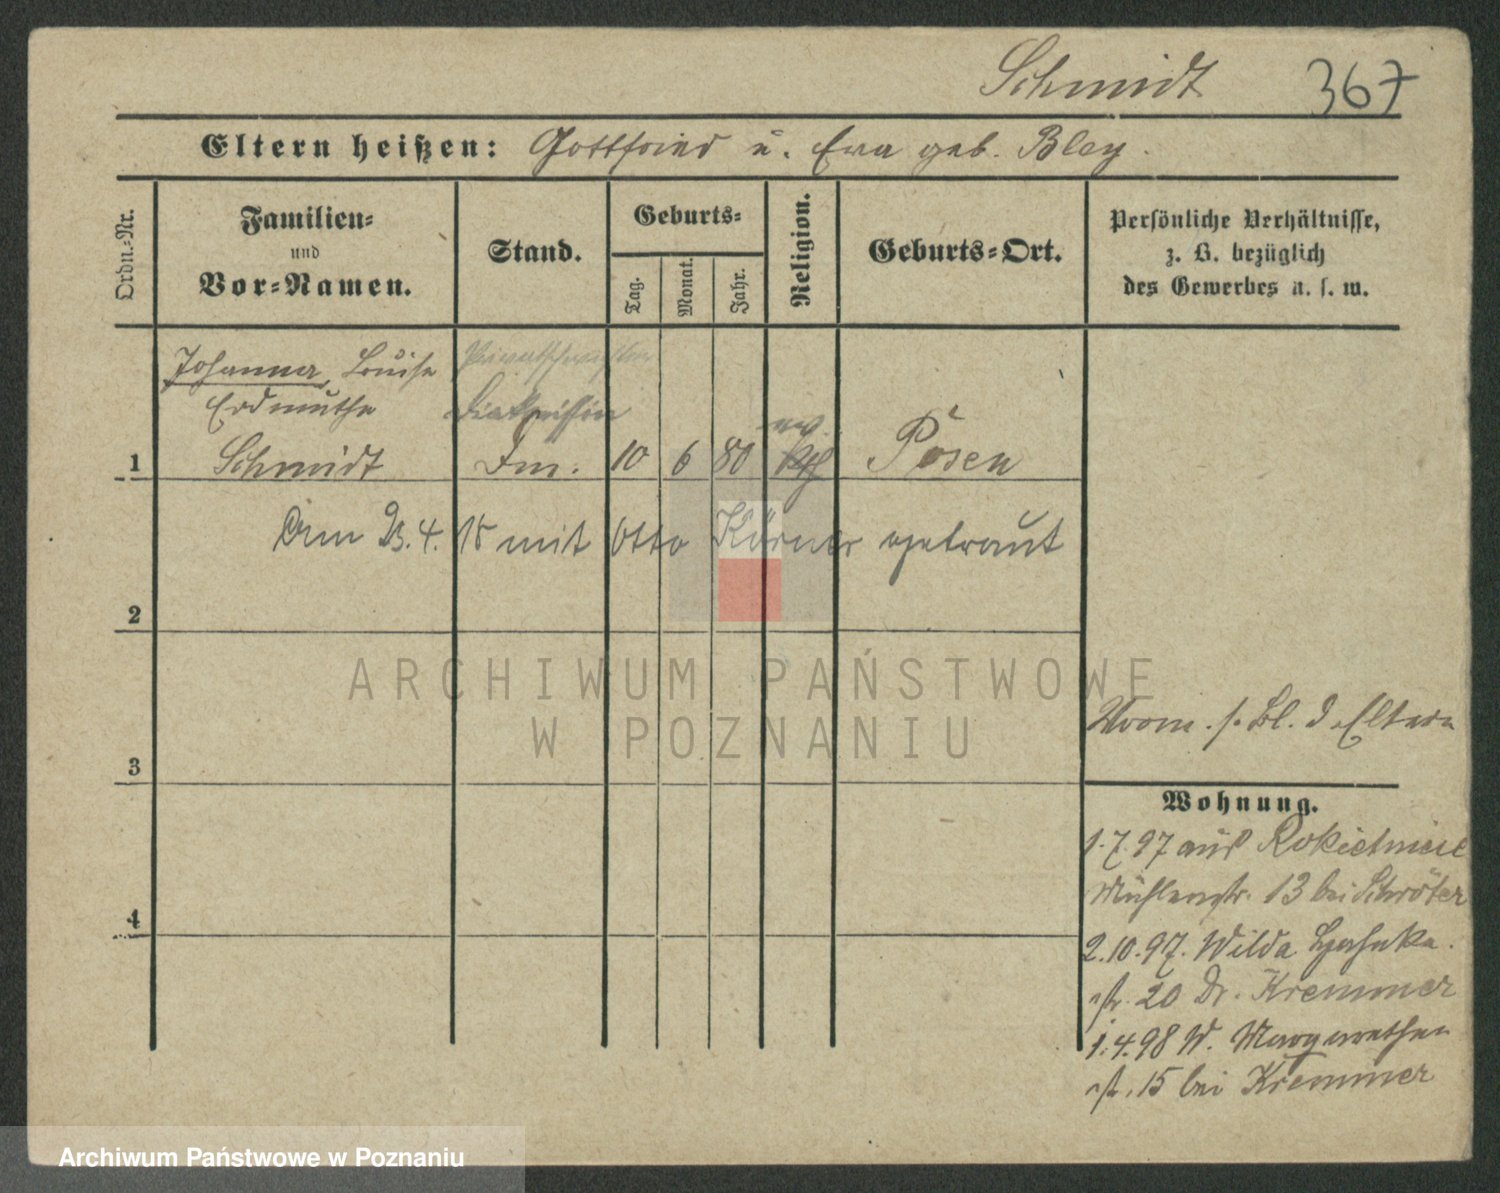 Schmidt 367
Eltern heißen: Gottfried u. Eva geb. Bley.
Ordn.-Nr.
Familien-
und
Vor-Namen.
Stand.
Geburts-
Tag.
Monat.
Jahr.
Religion.
Geburts-Ort.
Persönliche Verhältnisse,
z. B. bezüglich
des Gewerbes u. s. w.
Johanna Louise
Erdmuthe
Schmidt
Diakonissin
1
10 6 80
ev.
Posen
Am 23.4.15 mit Otto Körner getraut
2
ARCHIWUM PAŃSTWOWE
W POZNANIU
s. Bl. d. Eltern
3
Wohnung.
1.7.97 aus Rokietnice
Mühlenstr. 13 bei Schröter
2.10.97. Wilda
str. 20 Dr. Kremmer
1.4.98 W. Margarethen
str. 15 bei Kremmer
4
Archiwum Państwowe w Poznaniu